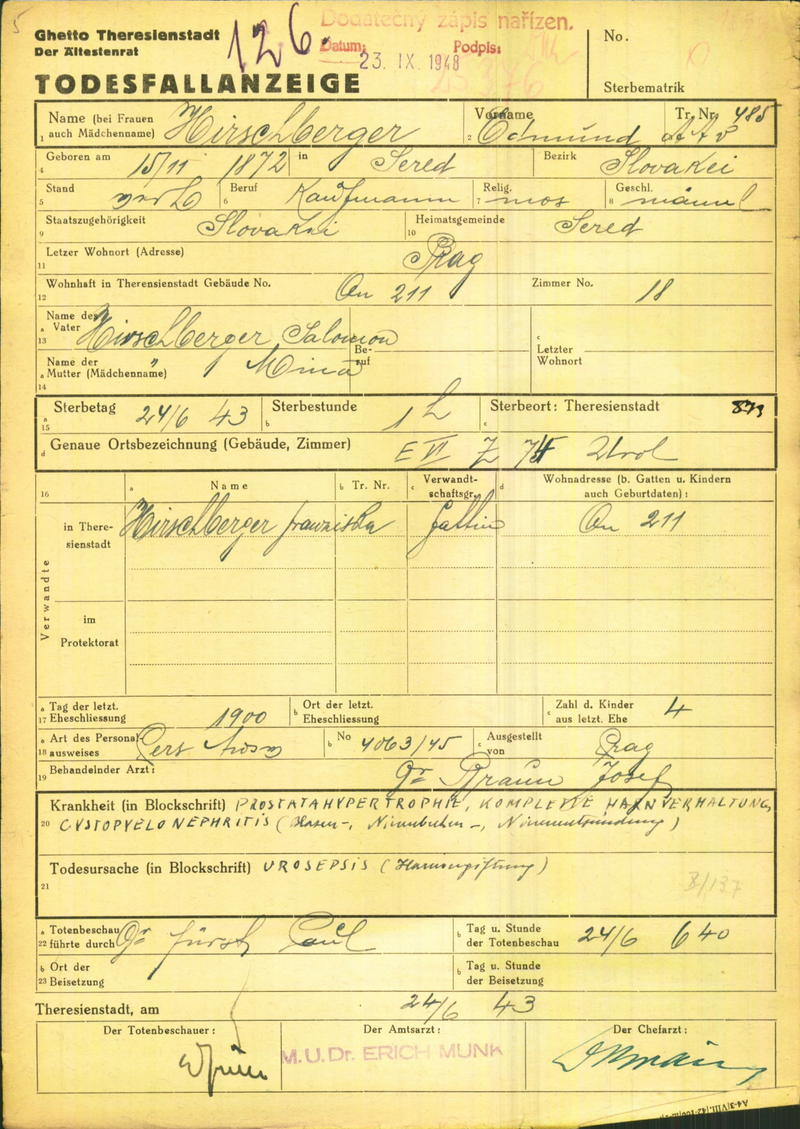 Ghetto Theresienstadt
Der Ältestenrat
TODESFALLANZEIGE
126.
Dodatečný zápis nařízen.
Datum: Podpis:
23. IX. 1948
No.
Sterbematrik
Name (bei Frauen auch Mädchenname) Hirschberger
1
2 Vorname Edmund
Tr. Nr. 485
AAv
4 Geboren am 15/11 1872 in Sered Bezirk Slovakei
5 Stand verh
6 Beruf Kaufmann
7 Relig. mos
8 Geschl. männl
9 Staatszugehörigkeit Slovakei
10 Heimatsgemeinde Sered
11 Letzer Wohnort (Adresse) Prag
12 Wohnhaft in Theresienstadt Gebäude No. Qu 211 Zimmer No. 18
13 a Name des Vater Hirschberger Salomon
Be-
ruf
c Letzter Wohnort
14 a Name der Mutter (Mädchenname) " Mina
15 a Sterbetag 24/6 43
b Sterbestunde 1 h
c Sterbeort: Theresienstadt 873
d Genaue Ortsbezeichnung (Gebäude, Zimmer) E VI Z 74 Urol
16 a Name b Tr. Nr. c Verwandt-schaftsgr. d Wohnadresse (b. Gatten u. Kindern auch Geburtdaten):
Verwandte
in There-sienstadt Hirschberger Franziska Gattin Qu 211
im Protektorat
17 a Tag der letzt. Eheschliessung 1900
b Ort der letzt. Eheschliessung
c Zahl d. Kinder aus letzt. Ehe 4
18 a Art des Personal-ausweises Pers Ausw
b No 4063/45
c Ausgestellt von Prag
19 Behandelnder Arzt: Dr Braun Josef
20 Krankheit (in Blockschrift) PROSTATAHYPERTROPHIE, KOMPLETTE HARNVERHALTUNG,
CYSTOPYELONEPHRITIS (Blasen-, Nierenbecken-, Nierenentzündung)
21 Todesursache (in Blockschrift) UROSEPSIS (Harnvergiftung)
B/137
22 a Totenbeschau führte durch Dr Fürst Paul
b Tag u. Stunde der Totenbeschau 24/6 6 40
23 b Ort der Beisetzung
b Tag u. Stunde der Beisetzung
Theresienstadt, am 24/6 43
Der Totenbeschauer: Der Amtsarzt: Der Chefarzt:
M.U.Dr. ERICH MUNK